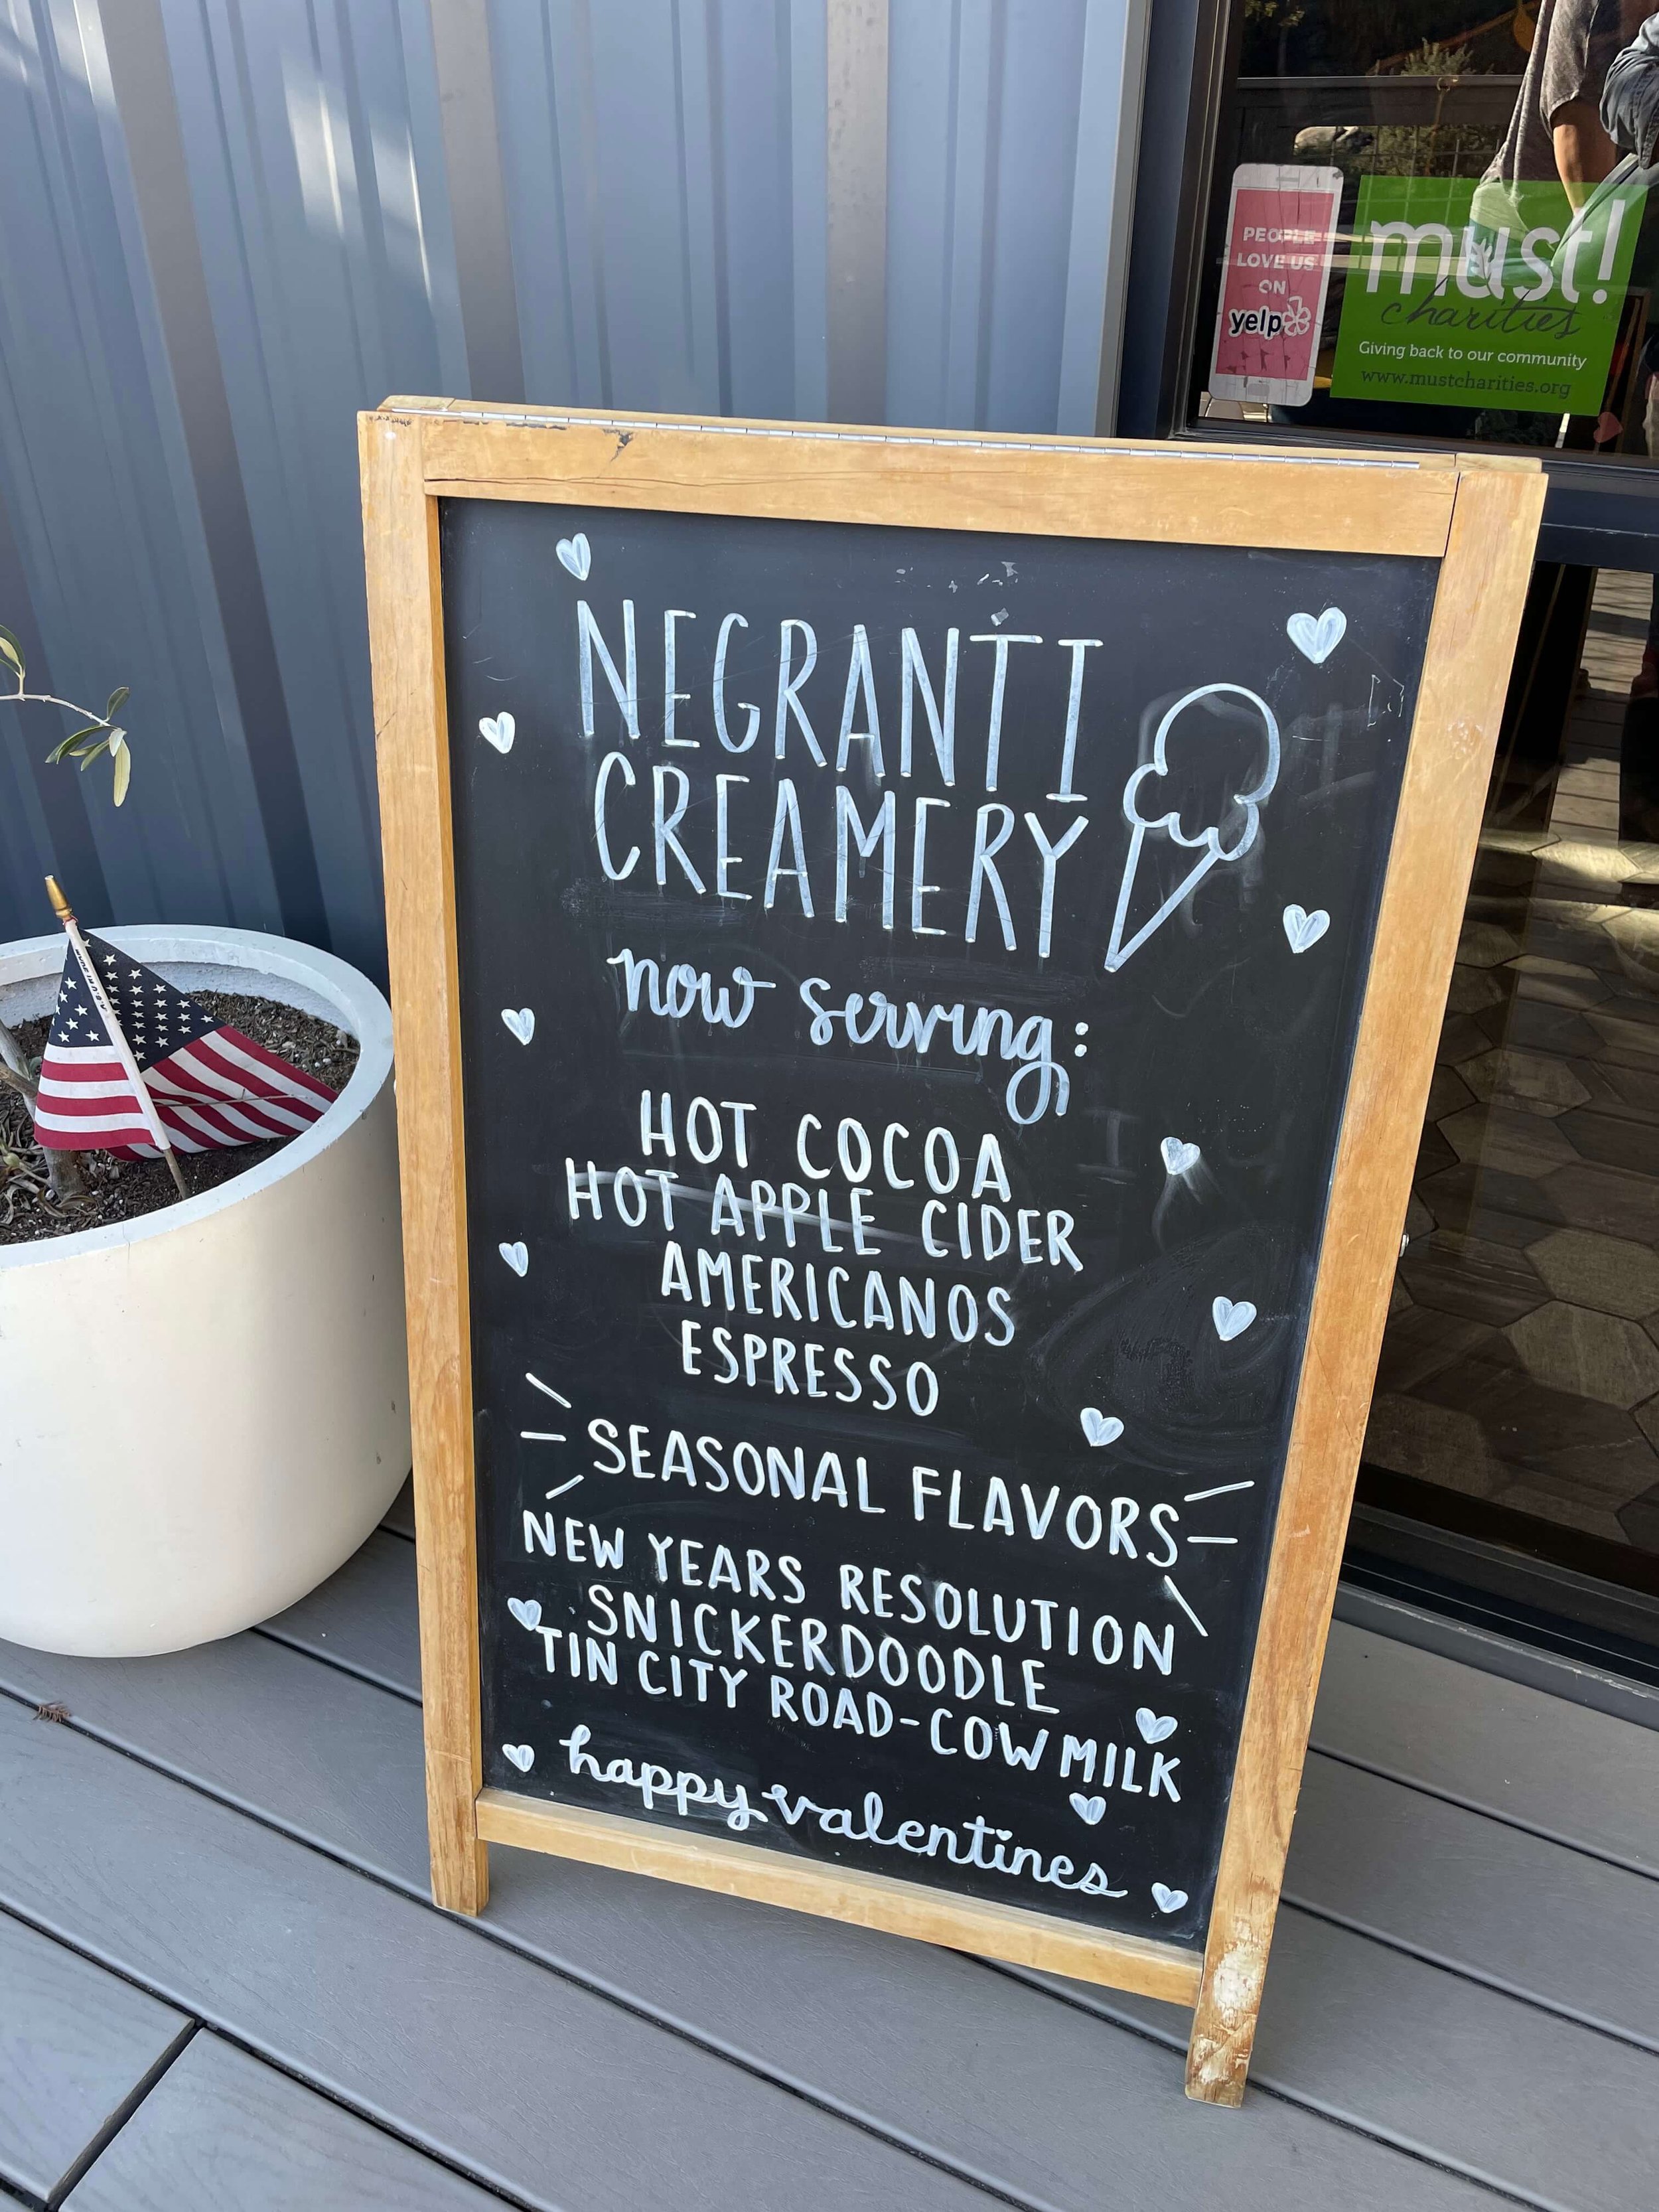 PEOPLE
LOVE US
ON
yelp
must!
charities
Giving back to our community
www.mustcharities.org
NEGRANTI
CREAMERY
now serving:
HOT COCOA
HOT APPLE CIDER
AMERICANOS
ESPRESSO
SEASONAL FLAVORS
NEW YEARS RESOLUTION
SNICKERDOODLE
TIN CITY ROAD-COW MILK
happy valentines